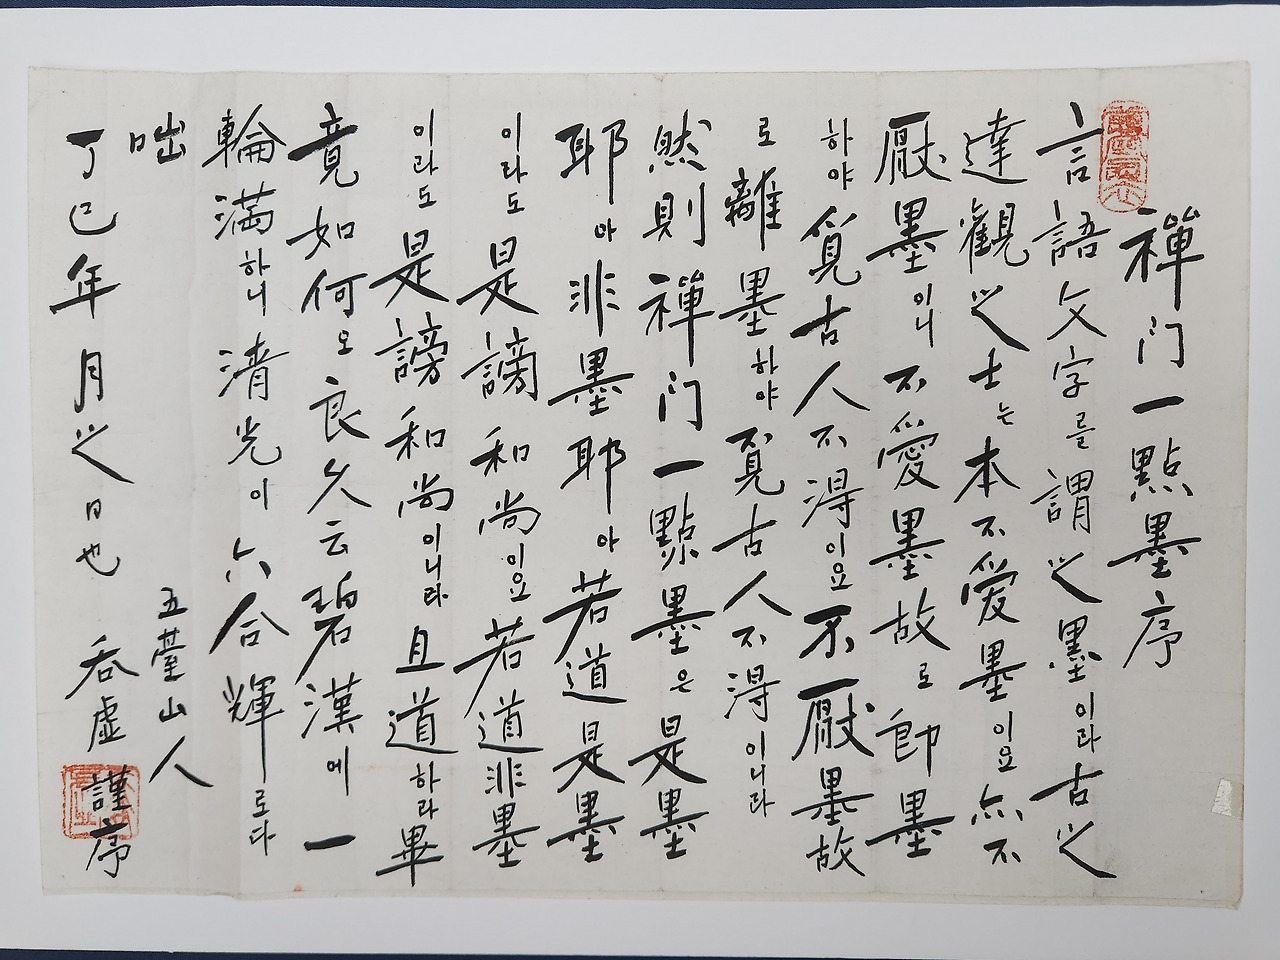 禪门一點墨序
言語文字를謂之墨이라古之
達觀之士는本不愛墨이요亦不
厭墨이니不愛墨故로卽墨
하야覓古人不淂이요不厭墨故
로離墨하야覓古人不淂이니라
然則禪门一點墨은是墨
耶아非墨耶아若道是墨
이라도是謗和尚이요若道非墨
이라도是謗和尚이니라且道하라畢
竟如何오良久云碧漢에一
輪滿하니淸光이六合輝로다
咄
丁巳年月之日也
五臺山人
呑虛謹序